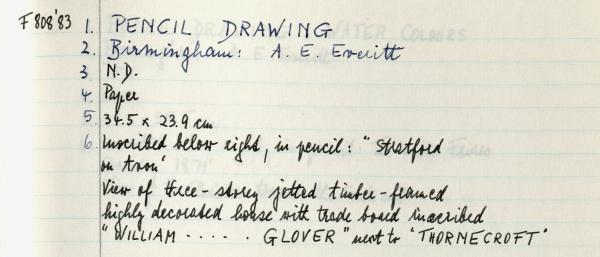 F808'83 1. PENCIL DRAWING
2. Birmingham: A. E. Everitt
3 N.D.
4. Paper
5. 34.5 x 23.9 cm
6. Inscribed below right, in pencil: "Stratford
on Avon'
View of three-storey jetted timber-framed
highly decorated house with trade board inscribed
"WILLIAM ..... GLOVER" next to 'THORNECROFT'